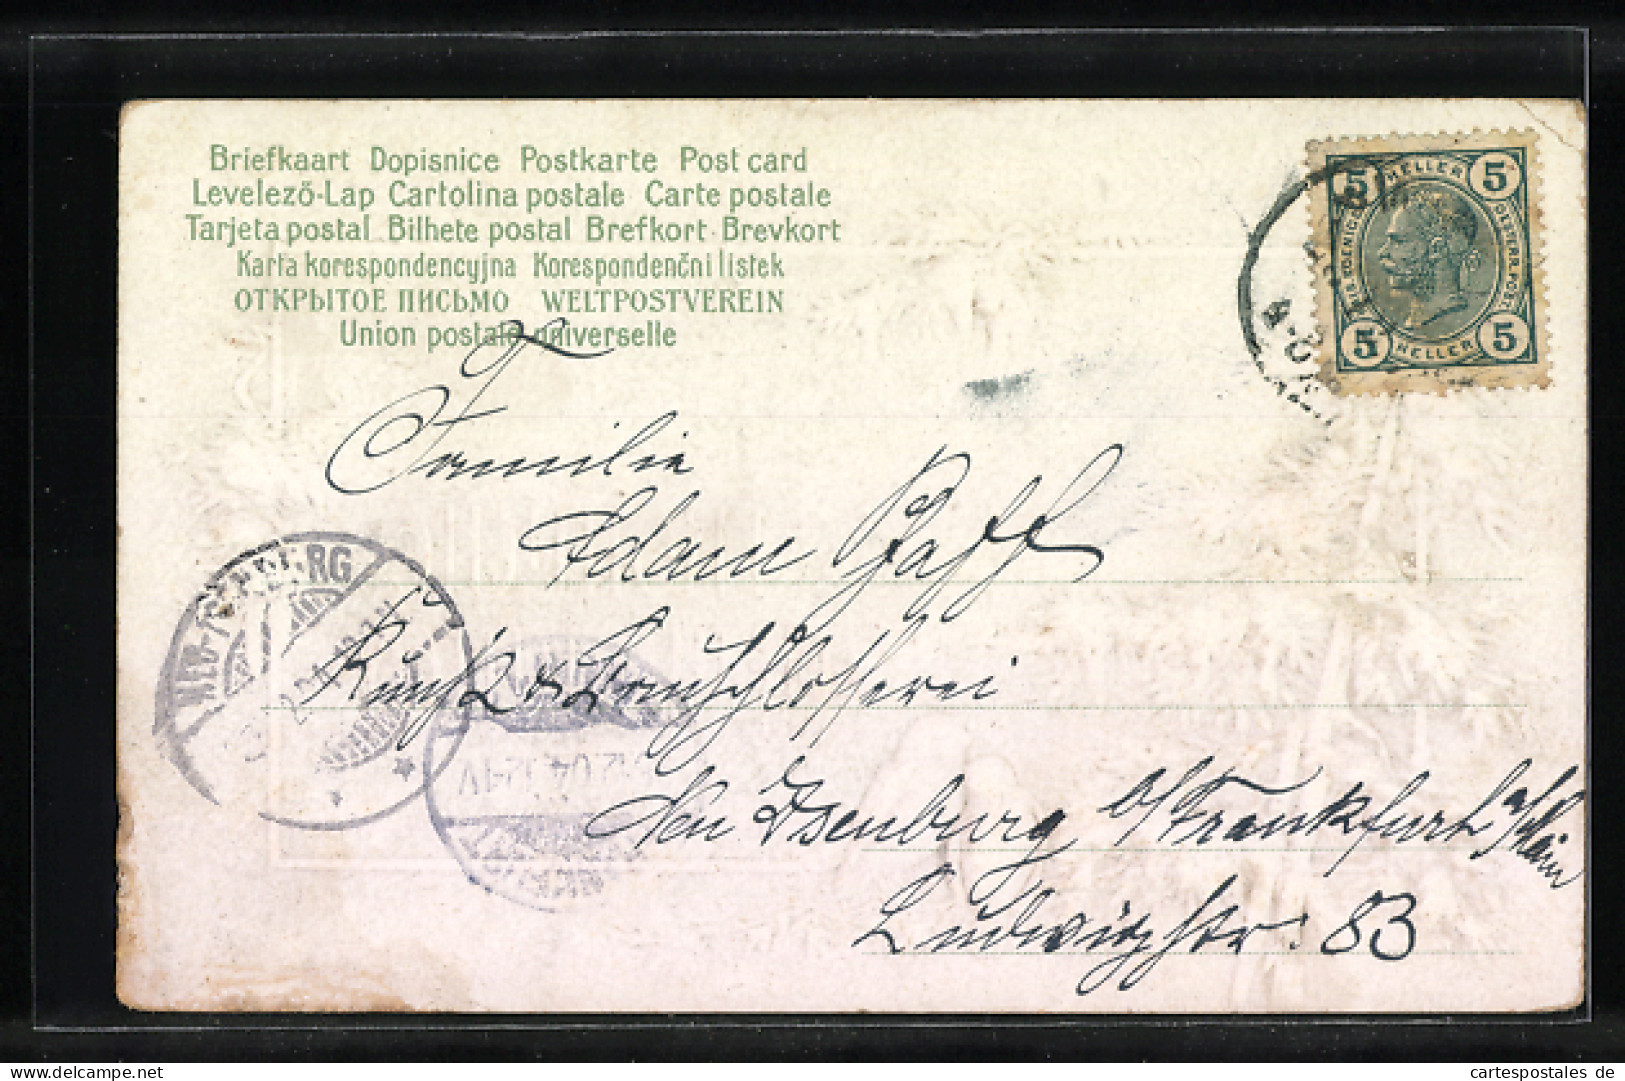 Briefkaart Dopisnice Postkarte Post card
Levelező-Lap Cartolina postale Carte postale
Tarjeta postal Bilhete postal Brefkort Brevkort
Karta korespondencyjna Korespondenčni listek
ОТКРЫТОЕ ПИСЬМО WELTPOSTVEREIN
Union postale universelle
5 HELLER 5
OESTERR. POST
5 HELLER 5
Familie
Adam Pfaff
Kunst & Bauschlosserei
Neu Isenburg b/ Frankfurt a/Main
Ludwigstr: 83
12 04 12-1V
cartespostales de